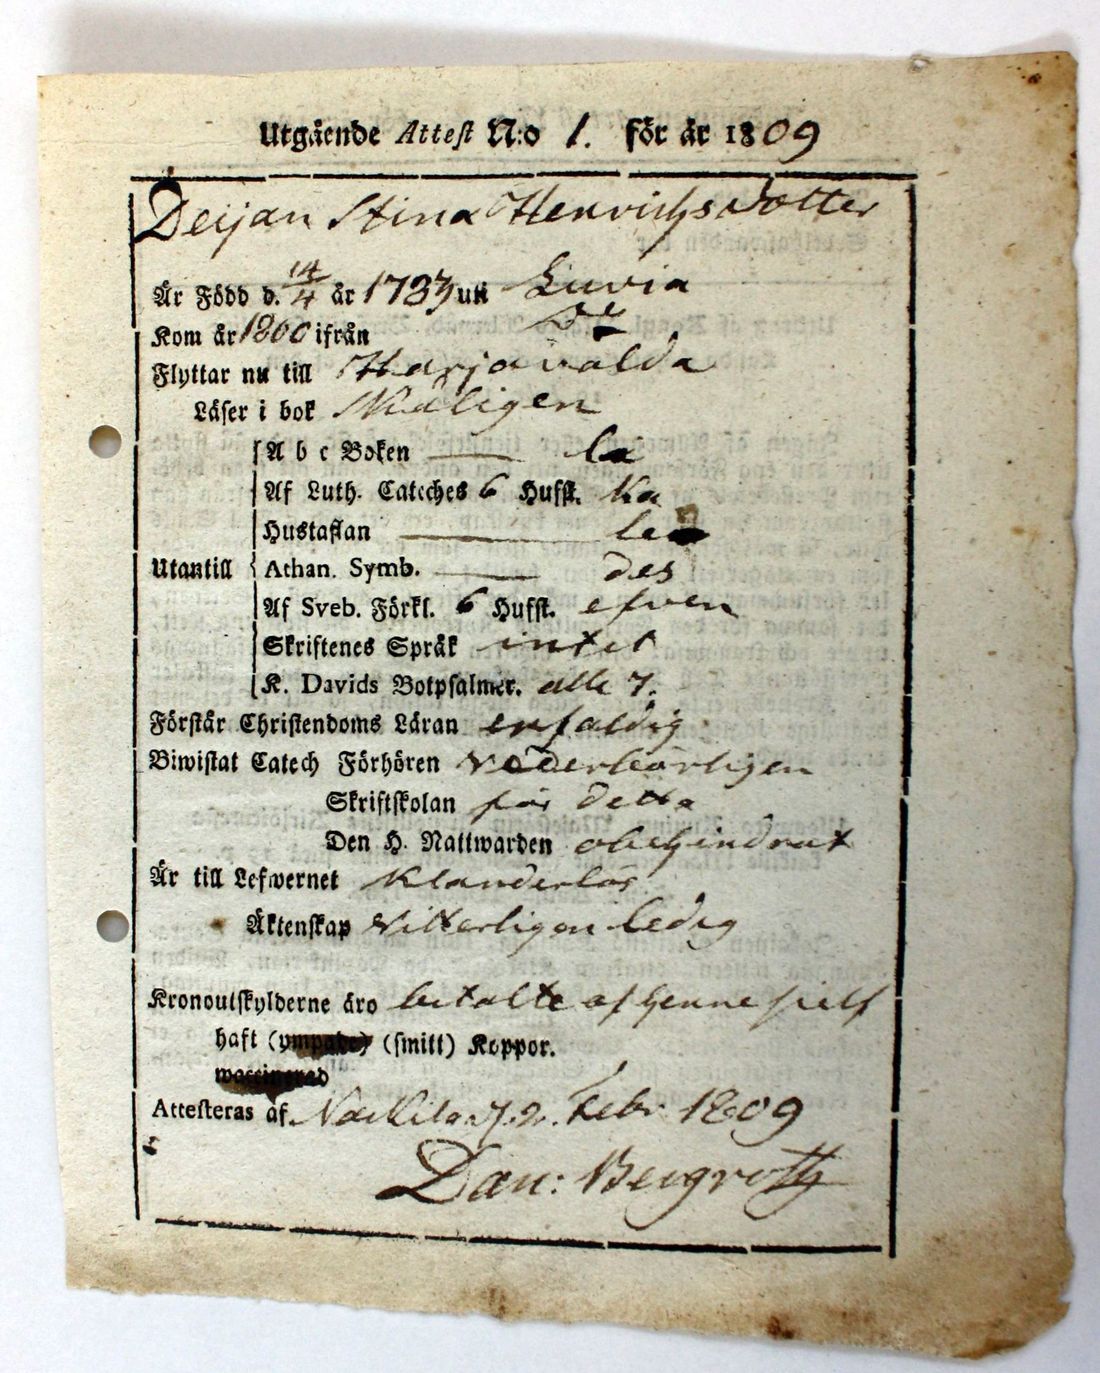 Utgående Attest N:o 1. för år 1809
Deijan Stina Henrichsdotter
Är Född d. 14/4 år 1783 uti Luvia
Kom år 1800 ifrån
Flyttar nu till Harjavalda
Läser i bok Skäligen
A b c Boken — la
Af Luth. Cateches 6 Hufst. Ka
Hustaflan — le
Utantill Athan. Symb. — des
Af Sveb. Förkl. 6 Hufst. efven
Skriftenes Språk intet
K. Davids Botpsalmer. alla 7.
Förstår Christendoms Läran enfaldig
Biwistat Catech Förhören vederbörligen
Skriftskolan för detta
Den H. Nattwarden obehindrat
Är till Lefwernet Klanderlös
Äktenskap Vitterligen ledig
Kronoutskylderne äro betalte af henne sielf
haft (ympade) (smitt) Koppor.
waccinerad
Attesteras af Nackila d. 2. Febr. 1809
Dan: Bergroth